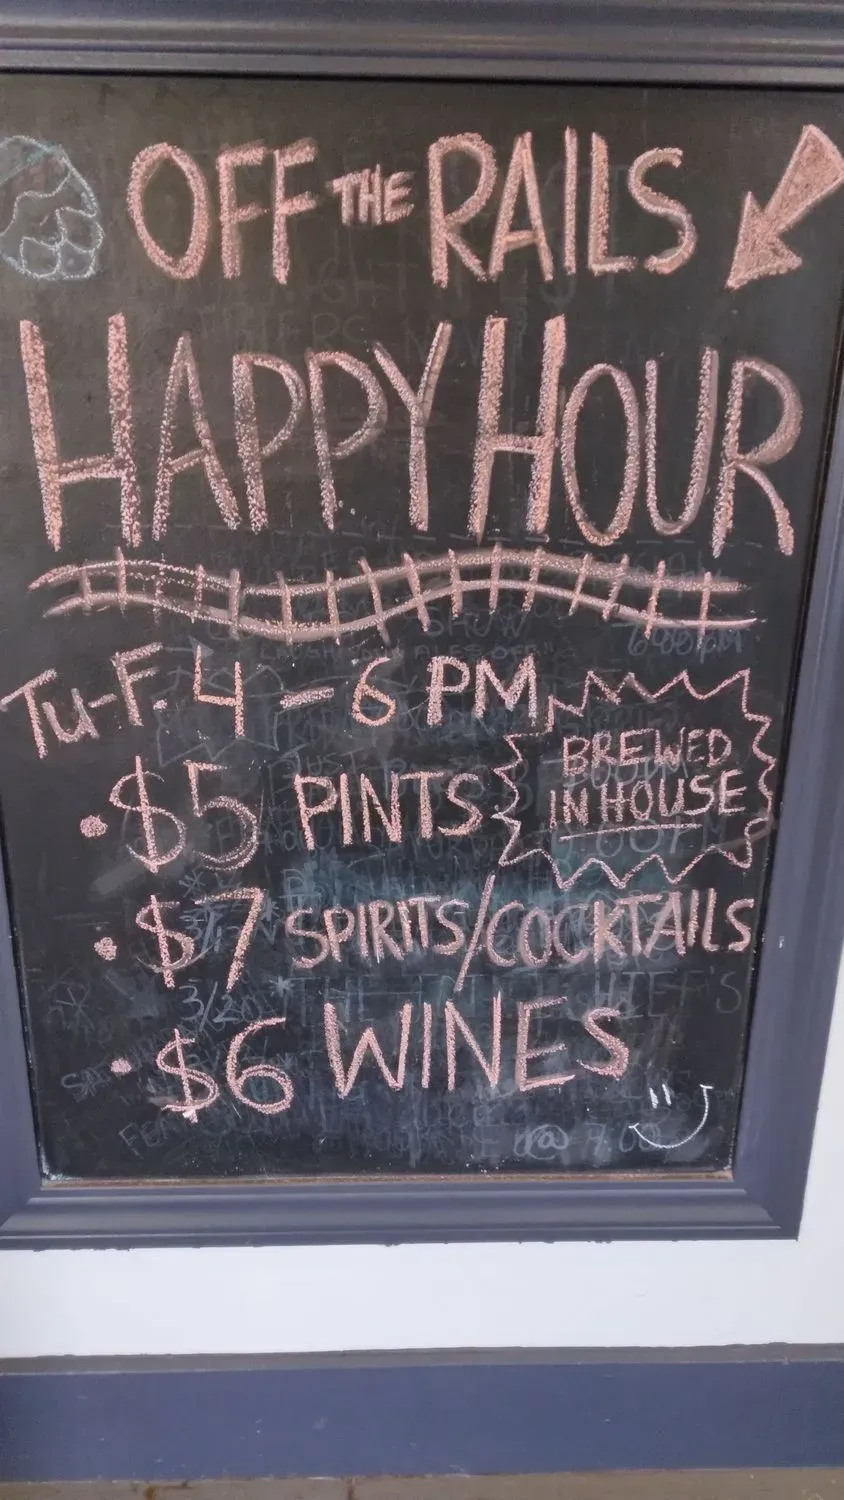 OFF THE RAILS
HAPPY HOUR
Tu-F. 4 - 6 PM
• $5 PINTS
BREWED
IN HOUSE
• $7 SPIRITS/COCKTAILS
• $6 WINES